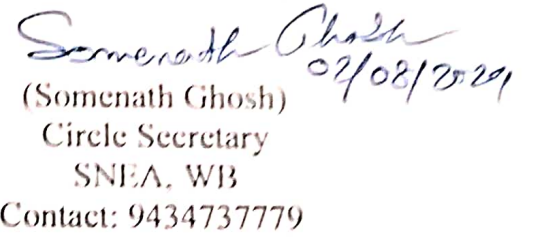 Somenath Ghosh
02/08/2024
(Somenath Ghosh)
Circle Secretary
SNEA, WB
Contact: 9434737779